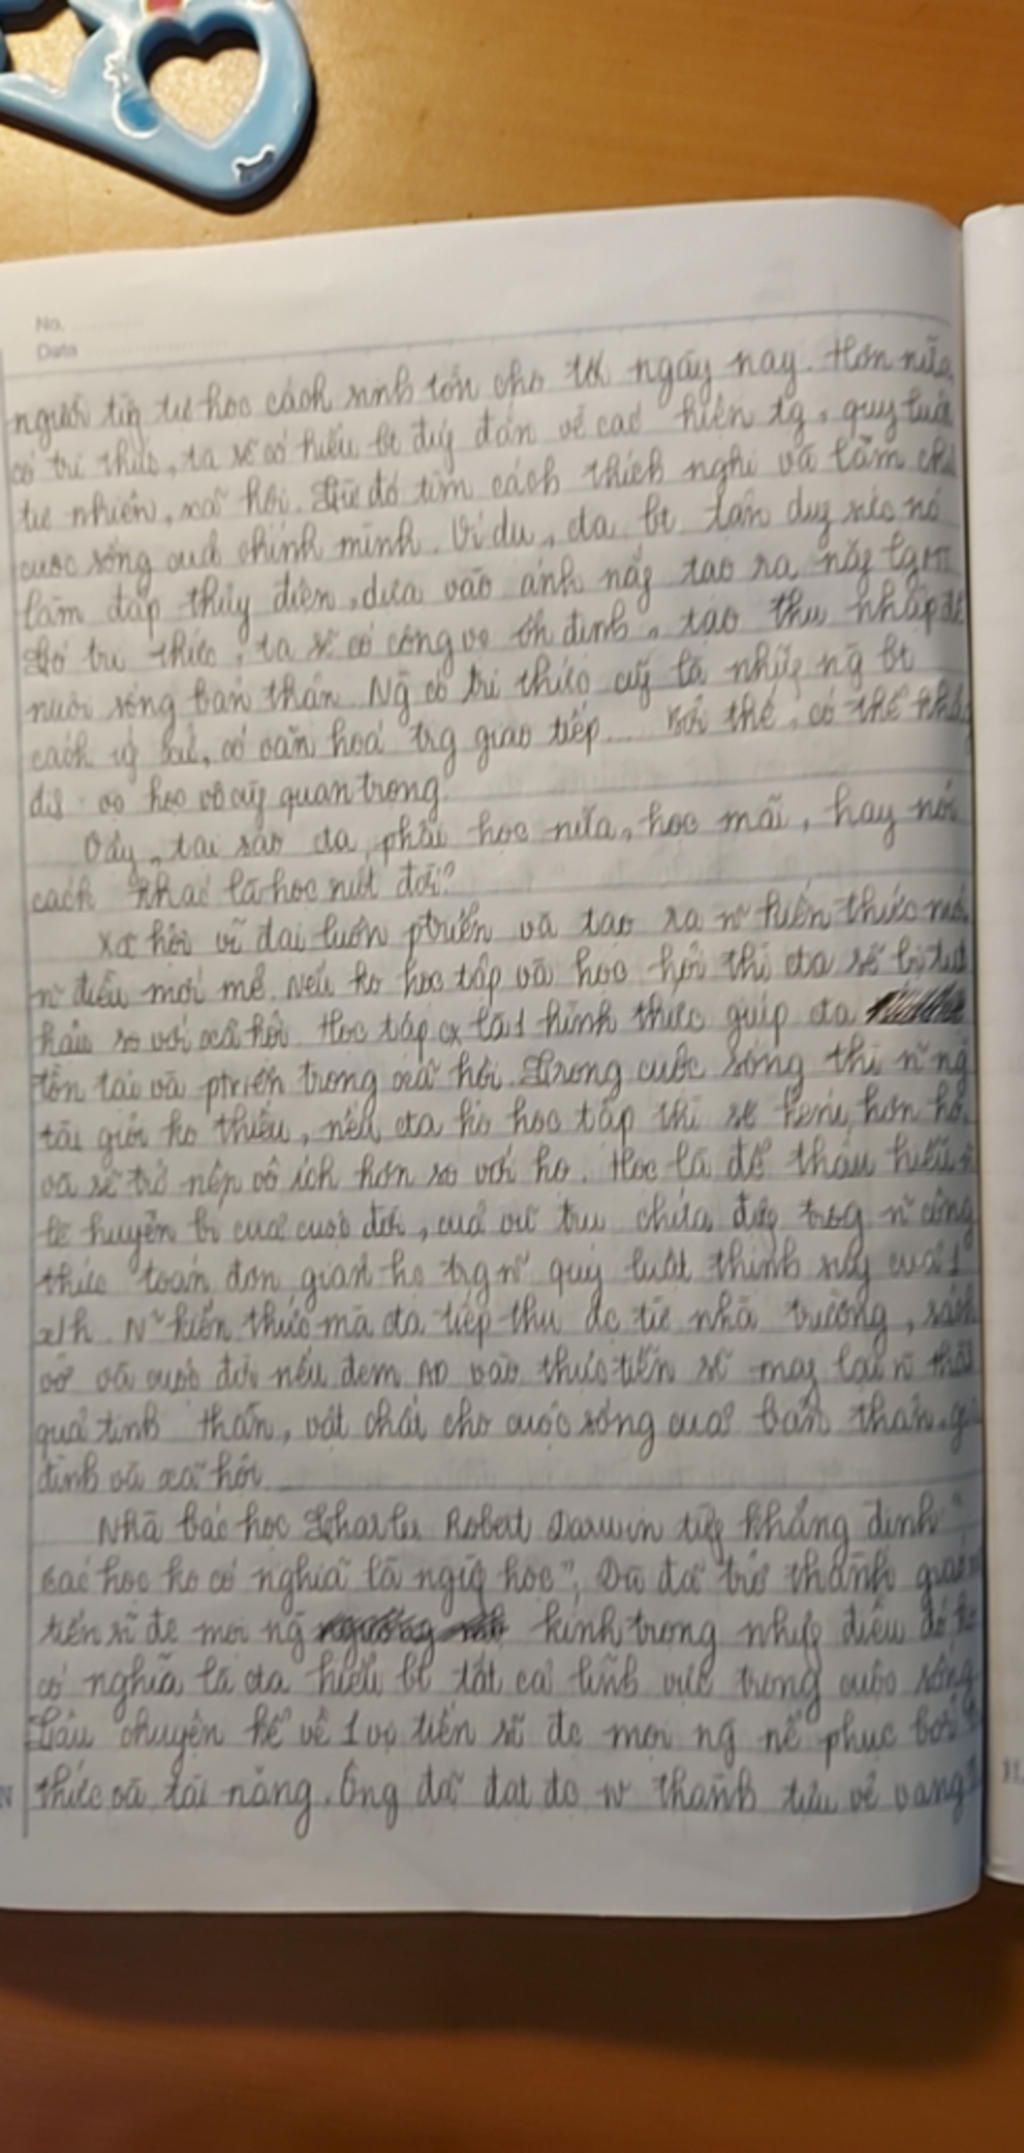 No.
Date
người từng tự học cách sinh tồn cho tới ngày nay. Hơn nữa,
có tri thức, ta sẽ có hiểu bt đúg đắn về các hiện tg, quy luật
tự nhiên, xã hội. Từ đó tìm cách thích nghi và làm chủ
cuộc sống của chính mình. Ví dụ, ta bt tận dụg sức nó
làm đập thủy điện, dựa vào ánh nắg tạo ra năg lg MT
Có tri thức, ta sẽ có công vc ổn định, tạo thu nhập để
nuôi sống bản thân. Ng có tri thức cg là nhữg ng bt
cách ứg xử, có văn hoá trg giao tiếp... Bởi thế, có thể khẳg
địh vc học vô cùg quan trọng.
Vậy, tại sao ta phải học nữa, học mãi, hay nói
cách khác là học suốt đời?
Xã hội vĩ đại luôn ptriển và tạo ra n~ kiến thức mới,
n~ điều mới mẻ. Nếu ko học tập và học hỏi thì ta sẽ bị tụt
hậu so với xã hội. Học tập cx là 1 hình thức giúp ta
tồn tại và ptriển trong xã hội. Trong cuộc sống thì n~ ng
tài giỏi ko thiếu, nếu ta ko học tập thì sẽ kém hơn họ,
và sẽ trở nên vô ích hơn so với họ. Học là để thấu hiểu
bí huyền bí của cuộc đời, của vũ trụ chứa đựg trog n~ công
thức toán đơn giản ho trg n~ quy luật thịnh suy của 1
xh. N~ kiến thức mà ta tiếp thu đc từ nhà trường, sách
vở và cuộc đời nếu đem AD vào thực tiễn sẽ mag lại n~ thàh
quả tinh thần, vật chất cho cuộc sống của bản thân, gia
đình và xã hội.
Nhà bác học Charles Robert Darwin từg khẳng định "
Bác học ko có nghĩa là ngừg học". Dù đã trở thành giáo sư
tiến sĩ đc mọi ng kính trọng nhưg điều đó ko
có nghĩa là ta hiểu bt tất cả lĩnh vực trong cuộc sống.
Câu chuyện kể về 1 vị tiến sĩ đc mọi ng nể phục bởi
thức và tài năng. Ông đã đạt đc n~ thành tựu vẻ vang